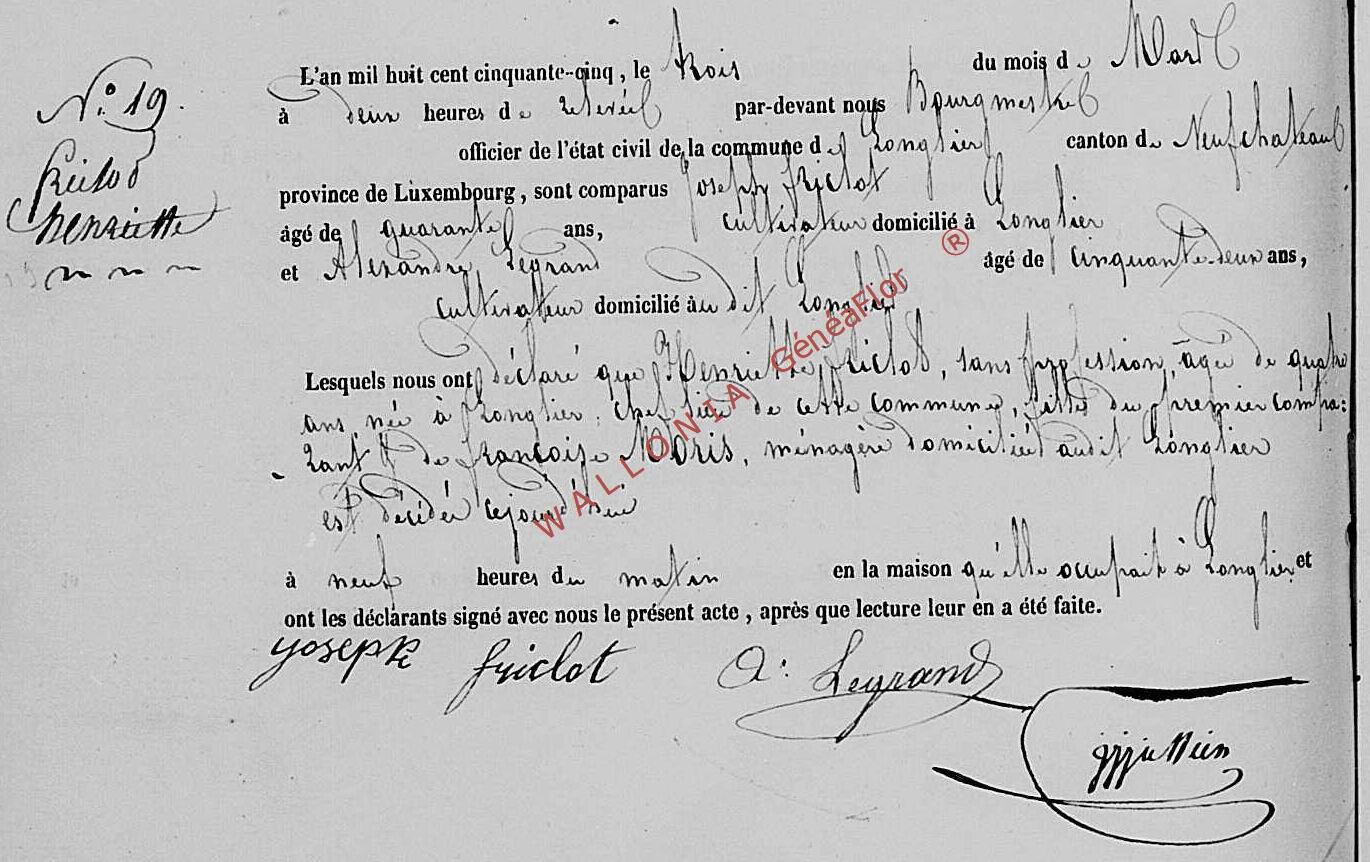 N.º 19.
Henriette
L'an mil huit cent cinquante-cinq, le trois du mois de Mars
à deux heures de relevée par-devant nous Bourgmestre
officier de l'état civil de la commune de Longlier canton de Neufchateau
province de Luxembourg, sont comparus Joseph Friclot
âgé de quarante ans, cultivateur domicilié à Longlier
et Alexandre Legrand âgé de cinquante-deux ans,
cultivateur domicilié au dit Longlier
Lesquels nous ont déclaré que Henriette Friclot, sans profession, agée de quatre
ans née à Longlier, chef lieu de cette commune, fille du premier compa:
rant & de Françoise Moris, ménagère domiciliée audit Longlier
est décédée cejourd'hui
à neuf heures du matin en la maison qu'elle occupait à Longlier, et
ont les déclarants signé avec nous le présent acte, après que lecture leur en a été faite.
Joseph friclot A: Legrand
WALLONIA GénéaFlor ®